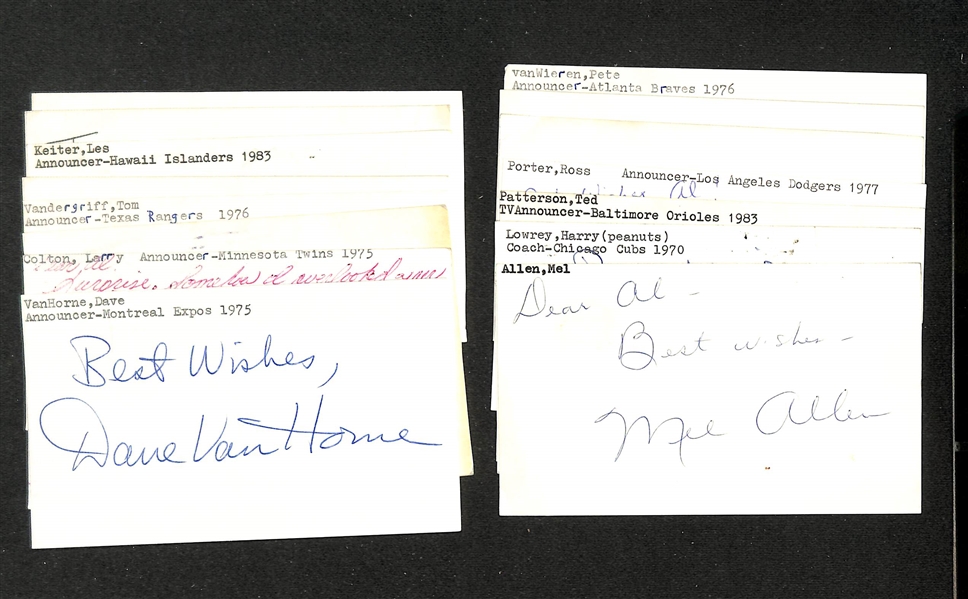 Keiter,Les
Announcer-Hawaii Islanders 1983
Vandergriff,Tom
Announcer-Texas Rangers 1976
Colton, Larry Announcer-Minnesota Twins 1975
Surprise. Somehow I overlooked
VanHorne,Dave
Announcer-Montreal Expos 1975
Best Wishes,
Dave Van Horne
vanWieren,Pete
Announcer-Atlanta Braves 1976
Porter,Ross Announcer-Los Angeles Dodgers 1977
Al
Patterson,Ted
TVAnnouncer-Baltimore Orioles 1983
Lowrey,Harry(peanuts)
Coach-Chicago Cubs 1970
Allen,Mel
Dear Al -
Best wishes -
Mel Allen